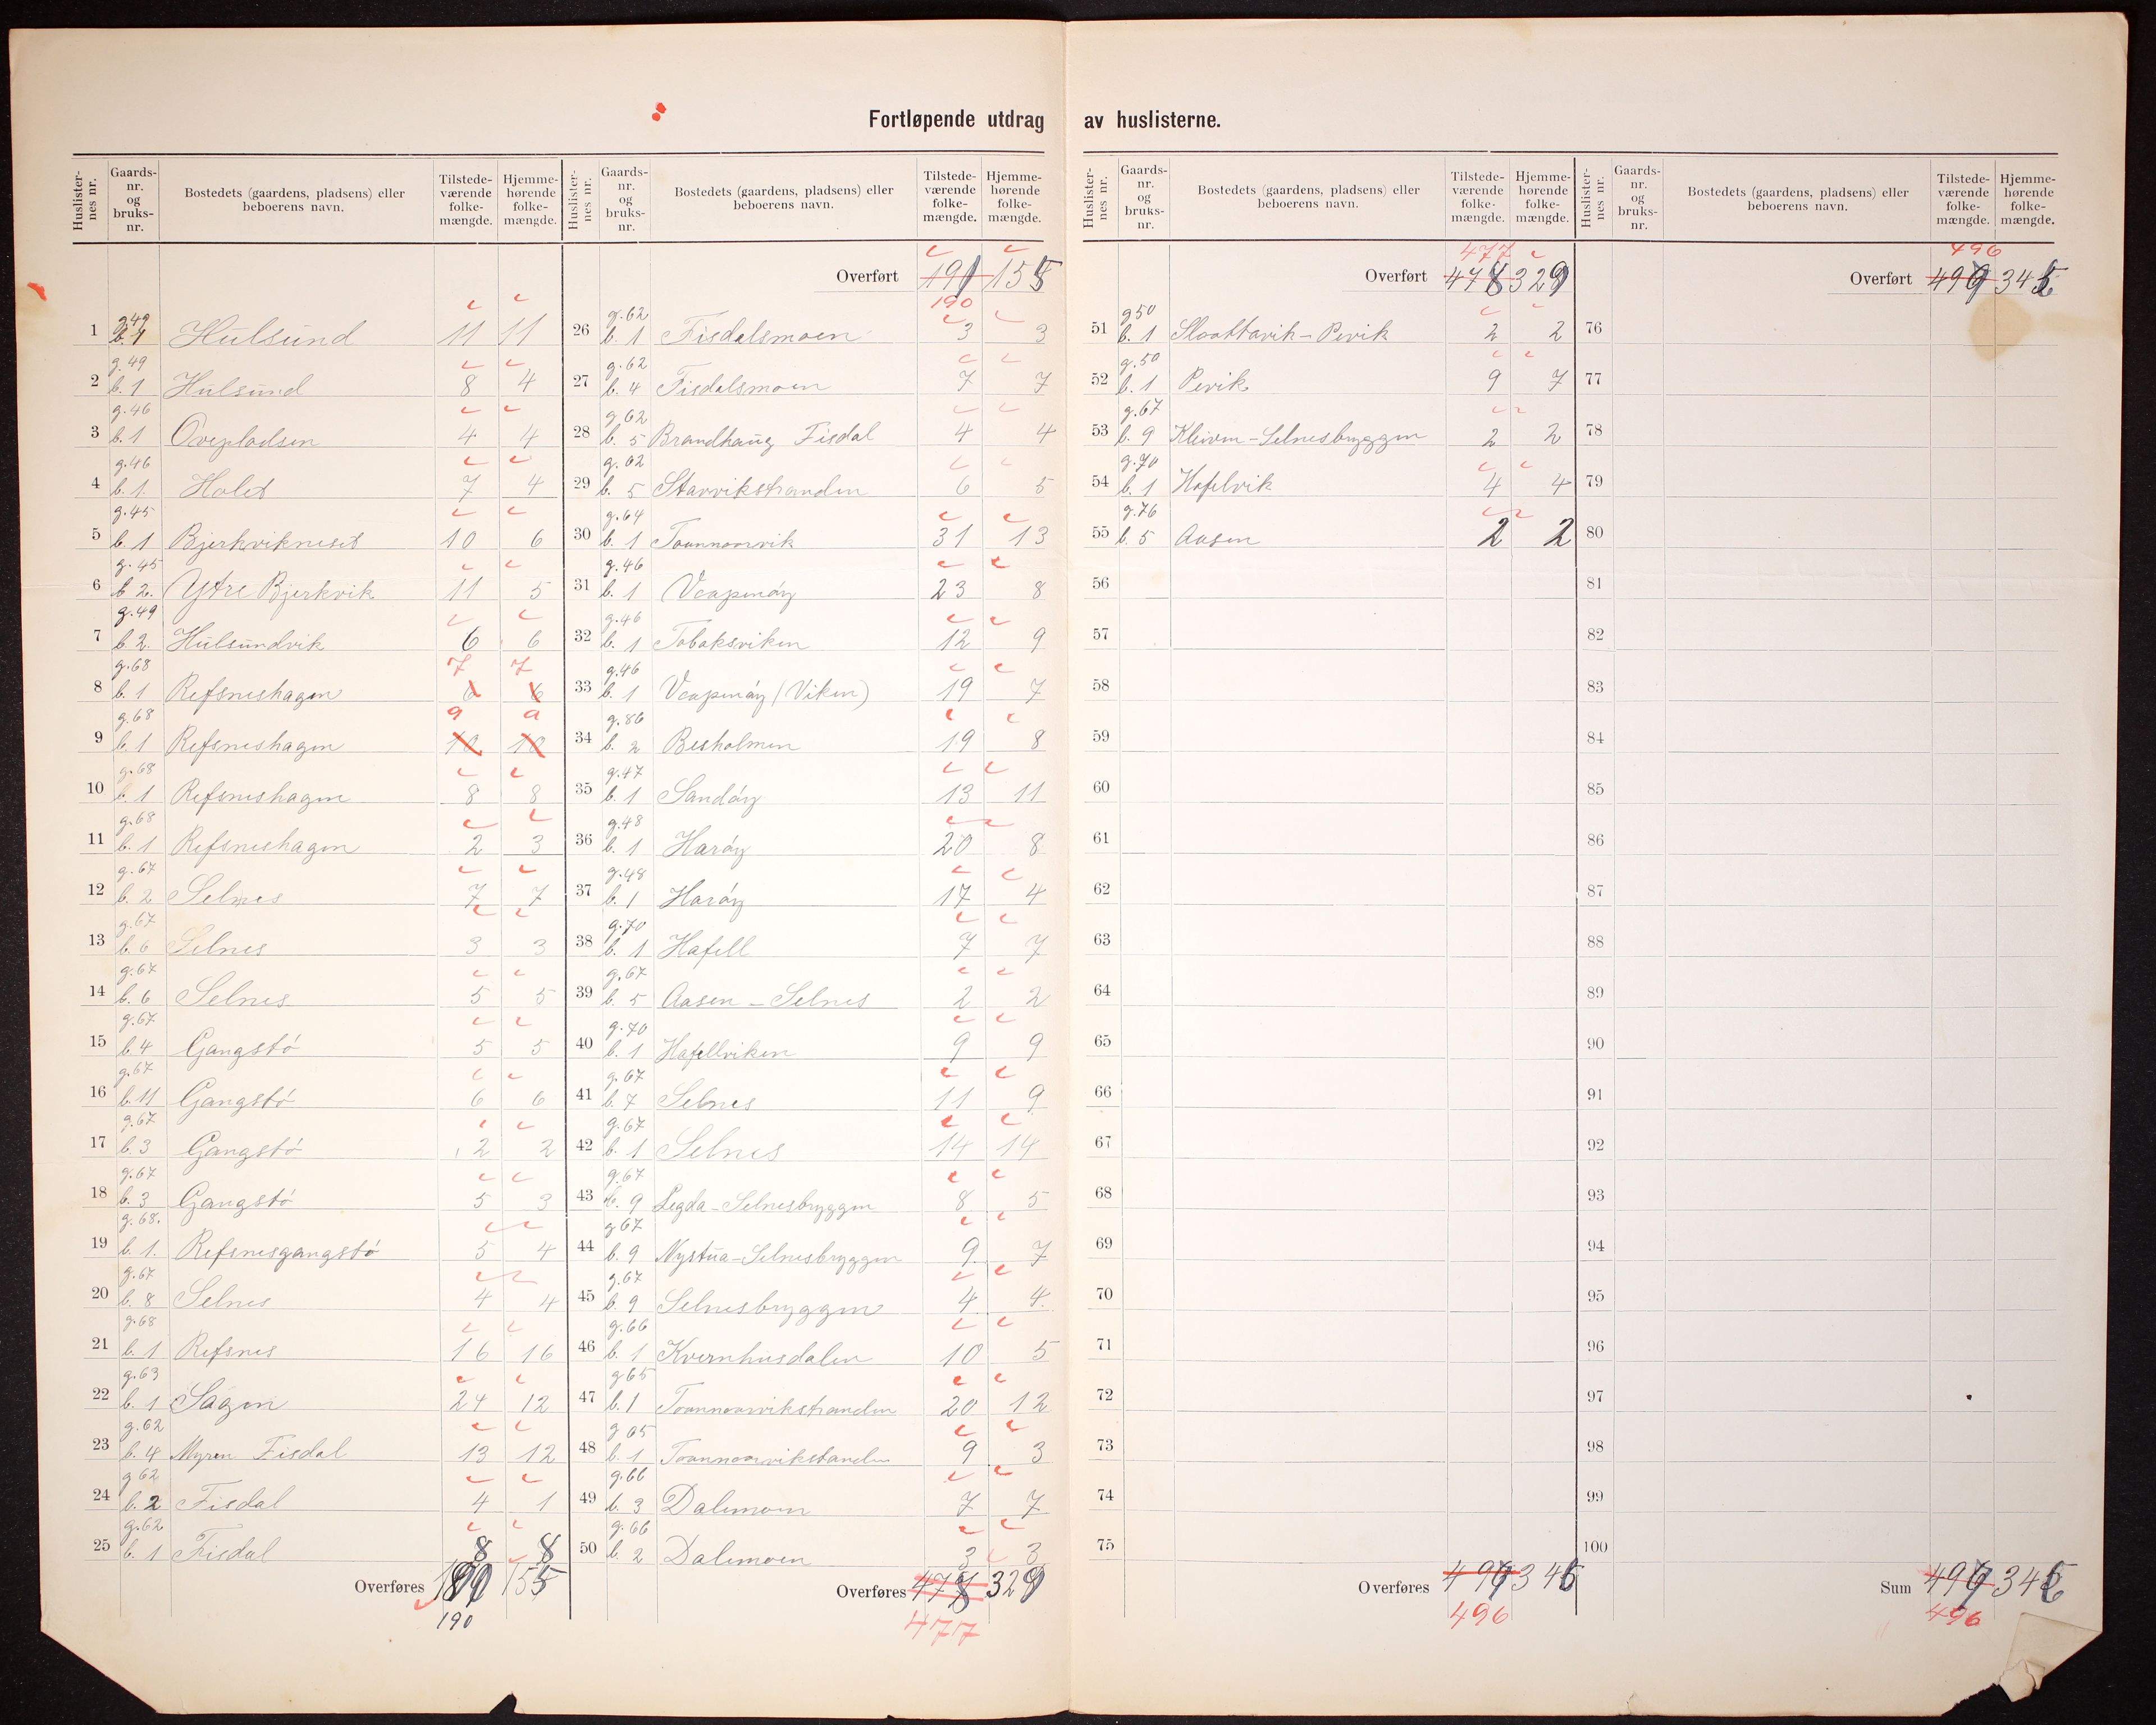 Fortløpende utdrag av huslisterne.
Huslister-nes nr. Gaards-nr. og bruks-nr. Bostedets (gaardens, pladsens) eller beboerens navn. Tilstede-værende folke-mængde. Hjemme-hørende folke-mængde.
1 g.49 b.1 Hulsund 11 11
2 g.49 b.1 Hulsund 8 4
3 g.46 b.1 Ovepladsen 4 4
4 g.46 b.1. Holet 7 4
5 g.45 b.1 Bjerkvikneset 10 6
6 g.45 b 2. Ytre Bjerkvik 11 5
7 g.49 b.2. Hulsundvik 6 6
8 g.68 b.1 Refsneshagen 7 7
9 g.68 b.1 Refsneshagen 10 10 9 9
10 g.68 b.1 Refsneshagen 8 8
11 g.68 b.1 Refsneshagen 2 3
12 g.67 b.2 Selnes 7 7
13 g.67 b.6 Selnes 3 3
14 g.67 b.6 Selnes 5 5
15 g.67 b.4 Gangstö 5 5
16 g.67 b.11 Gangstö 6 6
17 g.67 b.3 Gangstö 2 2
18 g.67 b.3 Gangstö 5 3
19 g.68. b.1. Refsnesgangstö 5 4
20 g.67 b.8 Selnes 4 4
21 g.68 b.1 Refsnes 16 16
22 g.63 b.1 Sagen 24 12
23 g.62 b.4 Myren Fisdal 13 12
24 g 62 b.2 Fisdal 4 1
25 g.62 b.1 Fisdal 8 8
Overføres 155
190
Huslister-nes nr. Gaards-nr. og bruks-nr. Bostedets (gaardens, pladsens) eller beboerens navn. Tilstede-værende folke-mængde. Hjemme-hørende folke-mængde.
Overført 191 155
190
26 g.62 b.1 Fisdalsmoen 3 3
27 g.62 b.4 Fisdalsmoen 7 7
28 g 62 b.5 Brandhaug Fisdal 4 4
29 g.62 b.5 Starvikstranden 6 5
30 g.64 b.1 31 13
31 g.46 b.1 23 8
32 g.46 b.1 Tobaksviken 12 9
33 g.46 b.1 (Viken) 19 7
34 g.86 b.2 Besholmen 19 8
35 g.47 b.1 Sandöy 13 11
36 g.48 b.1 Haröy 20 8
37 g.48 b.1 Haröy 17 4
38 g.70 b.1 Hafell 7 7
39 g.67 b.5 Aasen - Selnes 2 2
40 g.70 b.1 Hafellviken 9 9
41 g.67 b.7 Selnes 11 9
42 g.67 b.1 Selnes 14 14
43 g.67 b.9 Legda - Selnesbryggen 8 5
44 g 67 b.9 Nystua - Selnesbryggen 9 7
45 g.67 b.9 Selnesbryggen 4 4
46 g.66 b.1 Kvernhusdalen 10 5
47 g 65 b.1 20 12
48 g 65 b.1 9 3
49 g.66 b.3 Dalemoen 7 7
50 g.66 b.2 Dalemoen 3 3
Overføres 478 329
477
Huslister-nes nr. Gaards-nr. og bruks-nr. Bostedets (gaardens, pladsens) eller beboerens navn. Tilstede-værende folke-mængde. Hjemme-hørende folke-mængde.
477
Overført 478 329
51 g 50 b.1 Slaattavik - Pevik 2 2
52 g.50 b.1 Pevik 9 7
53 g.67 b.9 Kleiven - Selnesbryggen 2 2
54 g.70 b.1 Hafelvik 4 4
55 g.76 b.5 Aasen 2 2
56
57
58
59
60
61
62
63
64
65
66
67
68
69
70
71
72
73
74
75
Overføres 497 346
496
Huslister-nes nr. Gaards-nr. og bruks-nr. Bostedets (gaardens, pladsens) eller beboerens navn. Tilstede-værende folke-mængde. Hjemme-hørende folke-mængde.
496
Overført 497 346
76
77
78
79
80
81
82
83
84
85
86
87
88
89
90
91
92
93
94
95
96
97
98
99
100
Sum 497 346
496